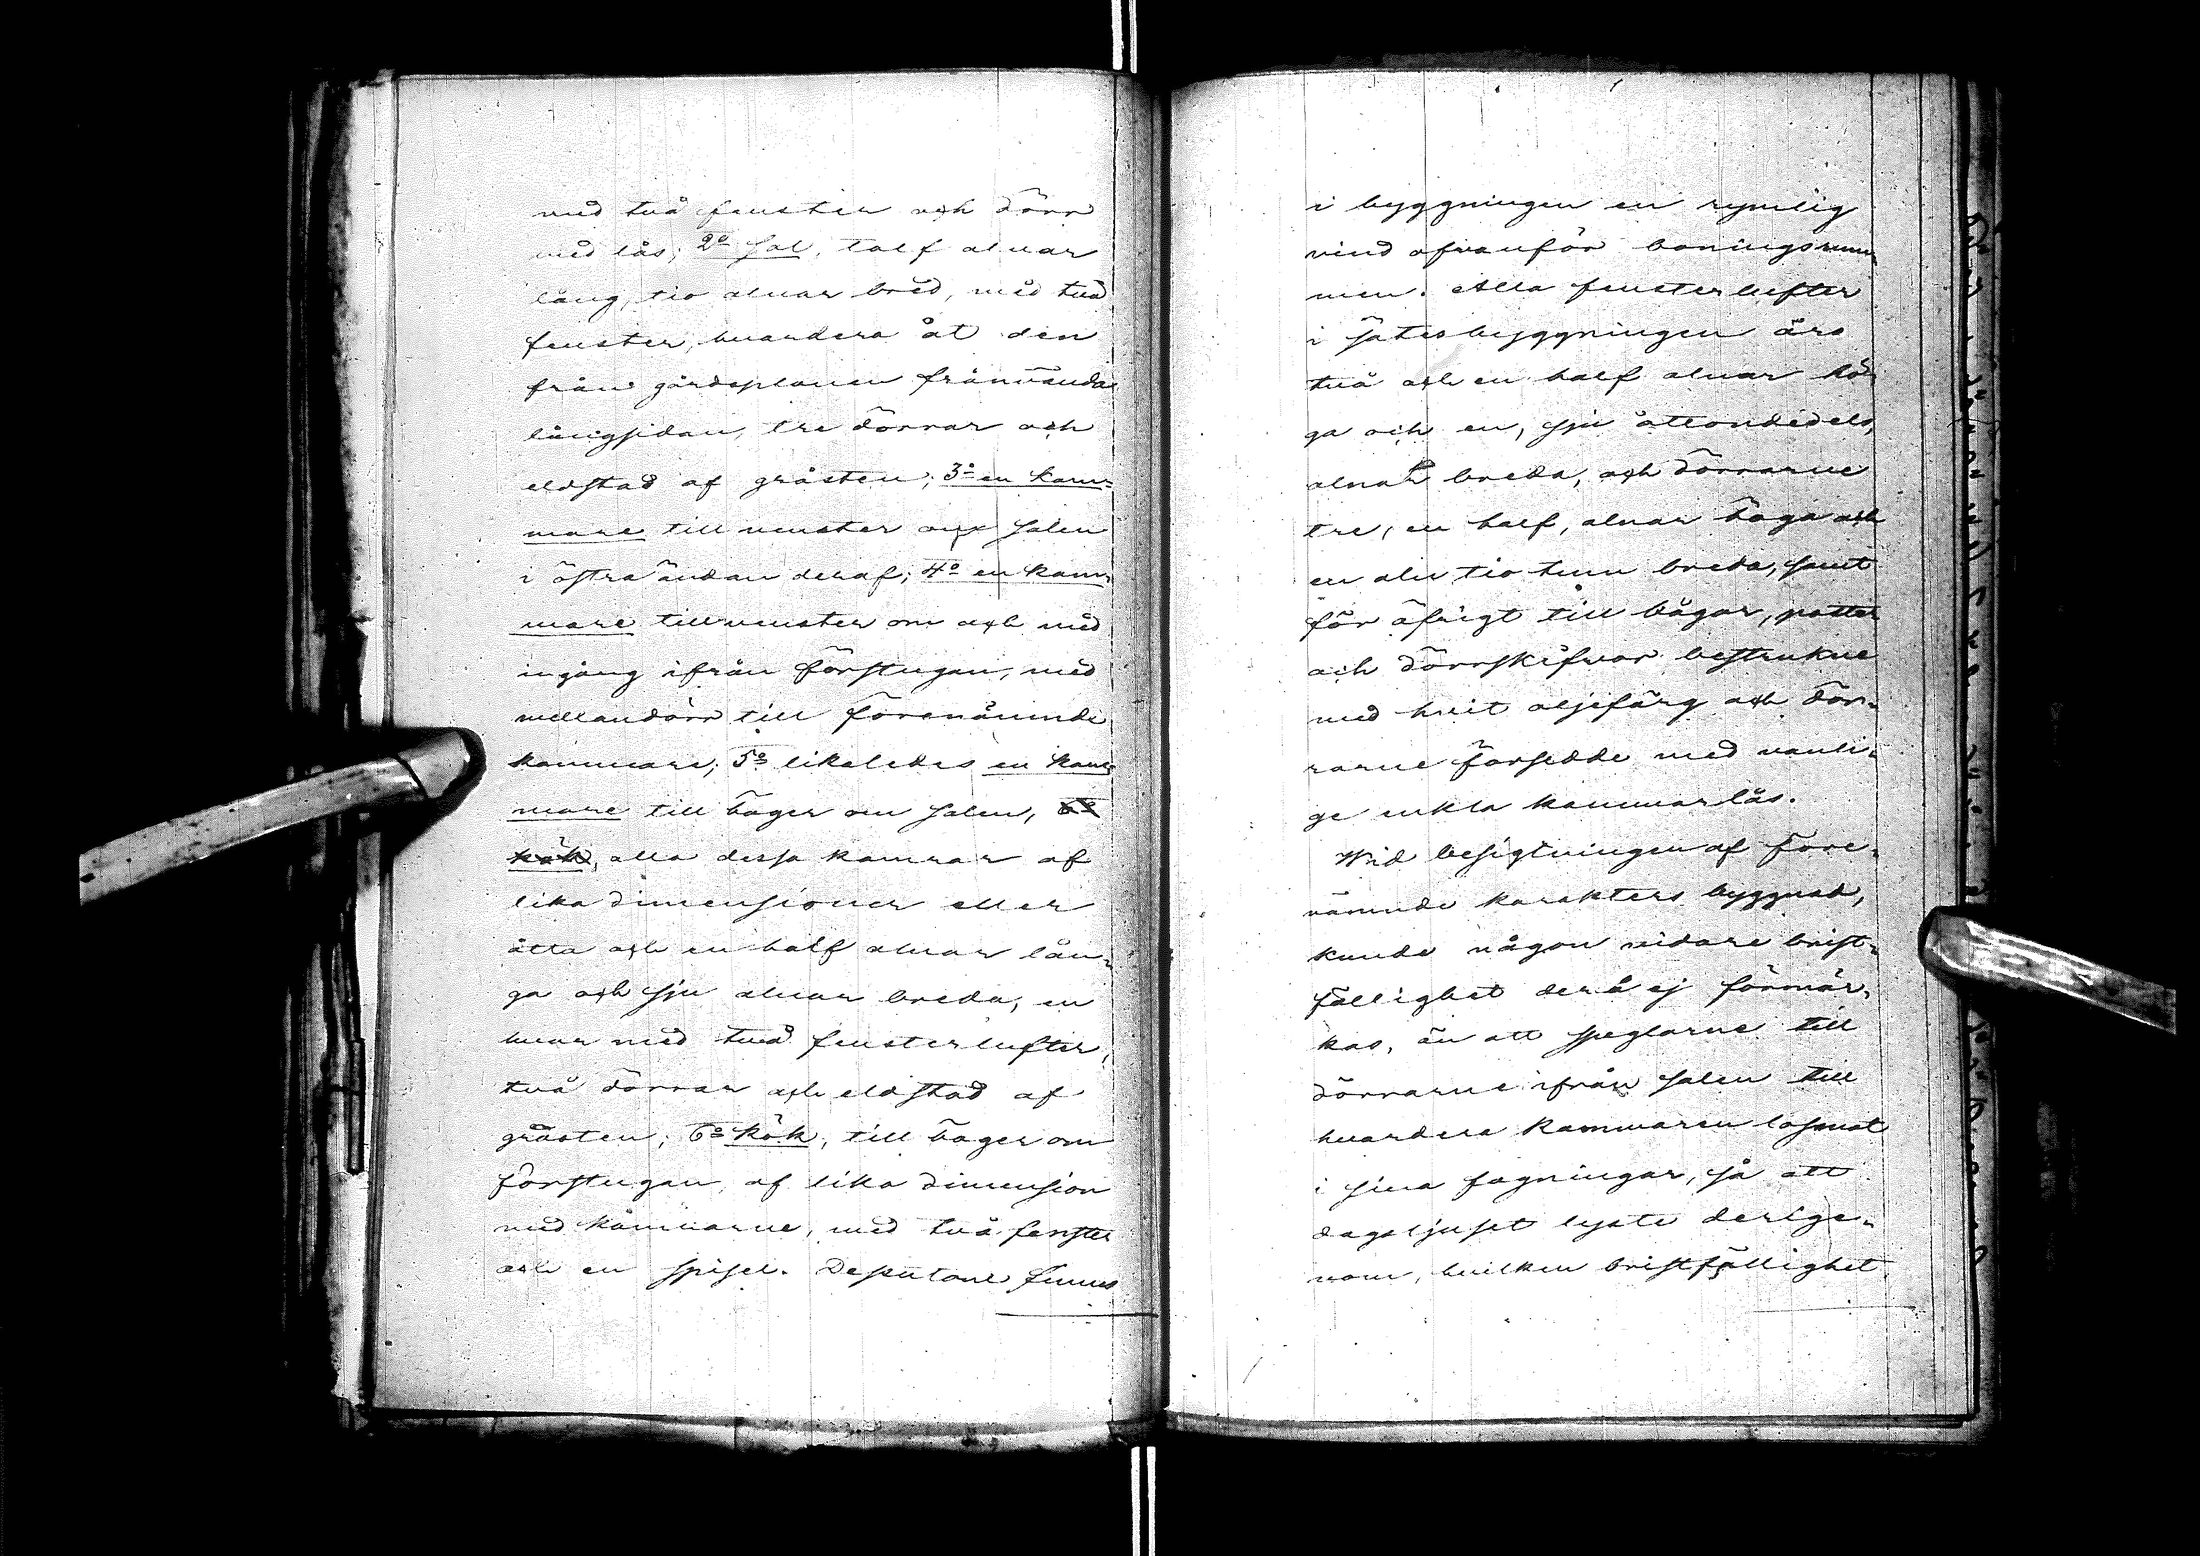 med två fenster och dörr
med lås; 2o Sal, tolf alnar
lång, tio alnar bred, med två
fenster, hvardera åt den
från gårdsplanen frånvända
långsidan, tre dörrar och
eldstad af gråsten; 3o en kam-
mare till venster om salen
i östra ändan deraf; 4o en kam-
mare till venster om och med
ingång ifrån förstugan, med
mellandörr till förenämnde
kammare; 5o likaledes en kam-
mare till höger om salen, 6o
kök, alla dessa kamrar af
lika dimensioner eller
åtta och en half alnar lån-
ga och sju alnar breda, en
hvar med två fensterlufter,
två dörrar och eldstad af
gråsten; 6o kök, till höger om
förstugan, af lika dimension
med kamrarne, med två fenster
och en spisel. Dessutom finnes
i byggningen en rymlig
vind ofvanför boningsrum-
men. Alla fensterlufter
i Sätesbyggningen äro
två och en half alnar hö-
ga och en, sju åttondedels,
alnar breda, och dörrarne
tre, en half, alnar höga och
en aln tio tum breda, samt
för öfrigt till bågar, poster
och dörrskifvor bestrukne
med hvit oljefärg och dör-
rarne försedde med vanli-
ge enkla kammarlås.
Wid besigtningen af före-
nämnde karakters byggnad,
kunde någon vidare brist-
fällighet derå ej förmär-
kas, än att speglarne till
dörrarne ifrån salen till
hvardera kammaren lossnat
i sina fogningar, så att
dagsljuset lyste derige-
nom, hvilken bristfällighet